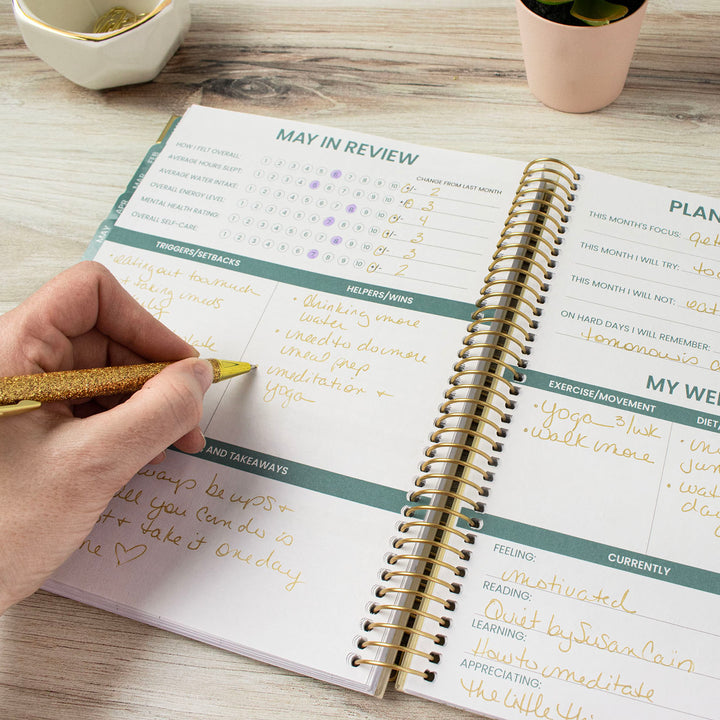 MAY IN REVIEW
CHANGE FROM LAST MONTH
HOW I FELT OVERALL: 1 2 3 4 5 6 7 8 9 10 2
AVERAGE HOURS SLEPT: 1 2 3 4 5 6 7 8 9 10 3
AVERAGE WATER INTAKE: 1 2 3 4 5 6 7 8 9 10 4
OVERALL ENERGY LEVEL: 1 2 3 4 5 6 7 8 9 10 3
MENTAL HEALTH RATING: 1 2 3 4 5 6 7 8 9 10 3
OVERALL SELF-CARE: 1 2 3 4 5 6 7 8 9 10 2
FEB
MAR
APR
MAY
TRIGGERS/SETBACKS
• eating out too much
+ taking meds
HELPERS/WINS
• drinking more
water
• need to do more
meal prep
• meditation +
yoga
AND TAKEAWAYS
always be ups +
all you can do is
+ take it one day
♡
PLAN
THIS MONTH'S FOCUS:
THIS MONTH I WILL TRY:
THIS MONTH I WILL NOT:
ON HARD DAYS I WILL REMEMBER:
tomorrow is
MY WE
EXERCISE/MOVEMENT
• Yoga 3/wk
• Walk more
DIET/
CURRENTLY
FEELING:
motivated
READING:
Quiet by Susan Cain
LEARNING:
How to meditate
APPRECIATING:
the little